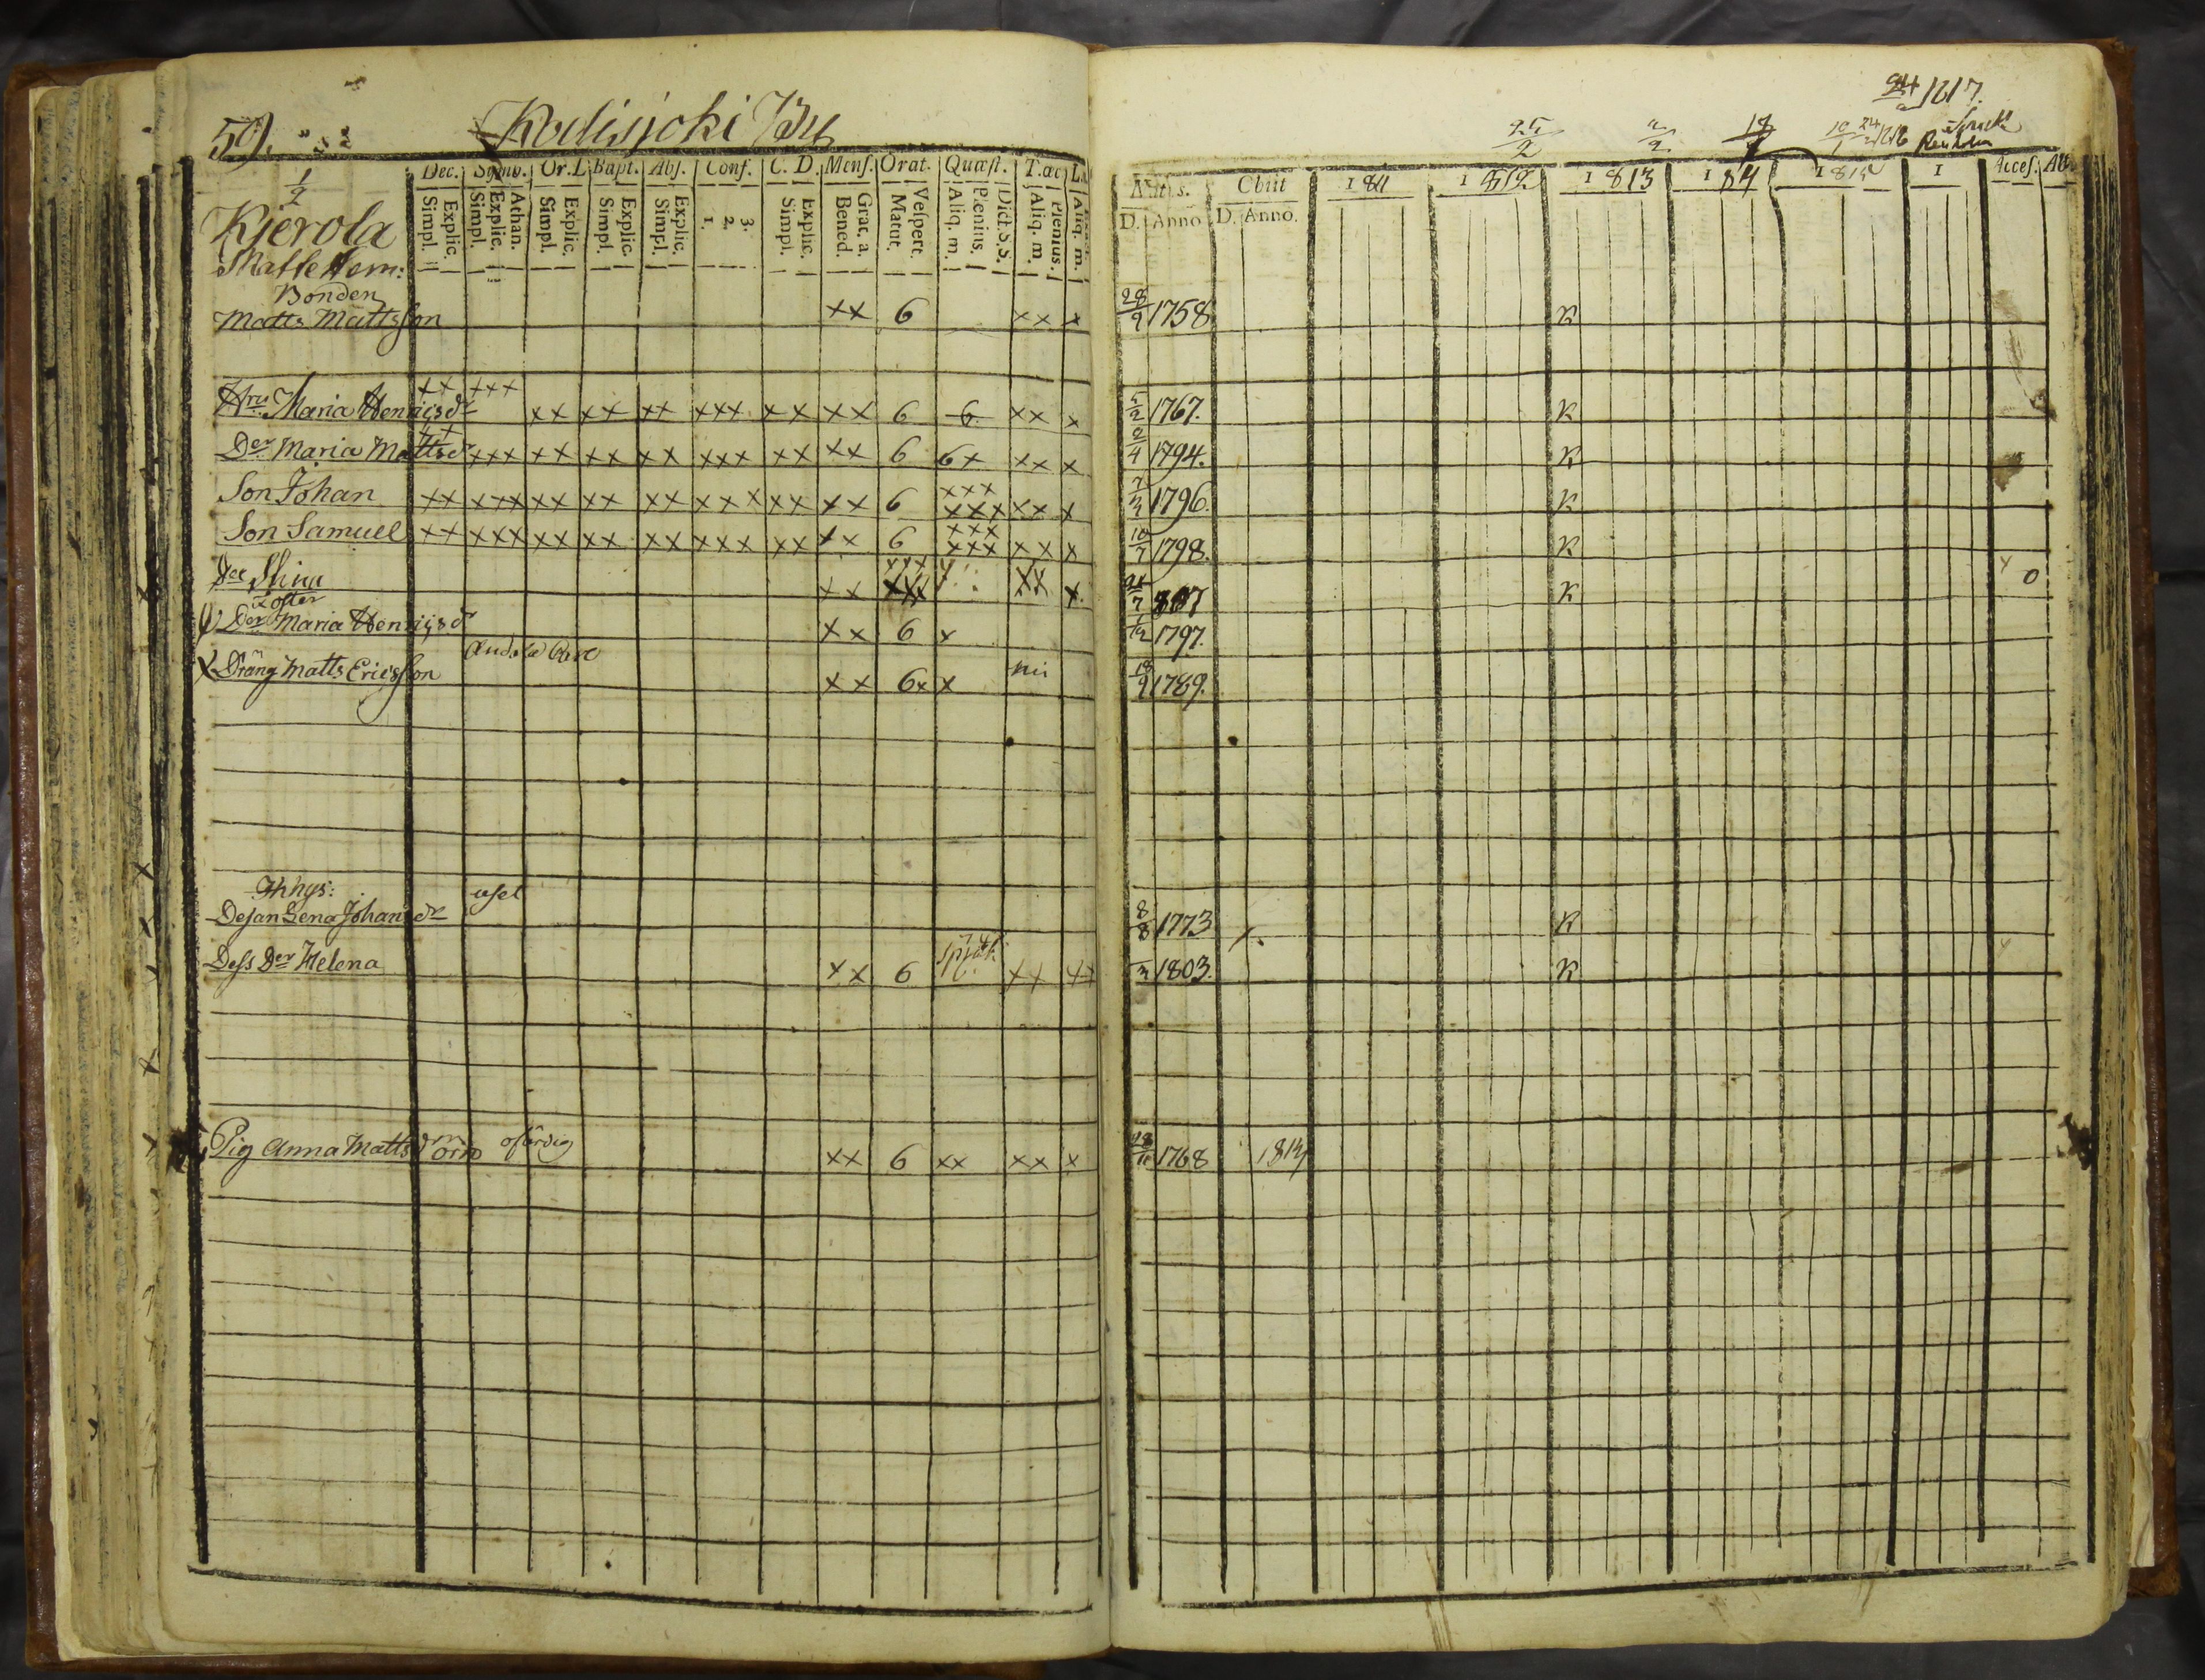 59.
Kodisjoki By
Dec. Symb. Or. L Bapt. Abs. Conf. C. D. Mens. Orat. Quæst. T. æc
Explic. Simpl. Athan. Explic. Simpl. Explic. Simpl. Explic. Simpl. Explic. Simpl. 3. 2. 1. Explic. Simpl. Grat. a. Bened. Vespert. Matut. Dict. S. S. Plenius. Aliq. m. Plenius. Aliq. m. Aliq. m.
1/2
Kjerola
Bonden
Matts Mattsson xx 6 xx x
Hru Maria Henricsdr xx xxx xx xx xx xxx xx xx 6 6 xx x
Der Maria Mattsdr xx xxx xx xx xx xxx xx xx 6 6x xx x
Son Johan xx xxx xx xx xx xxx xx xx 6 xxx xxx xx x
Son Samuel xx xxx xx xx xx xxx xx xx 6 xxx xxx xx x
Der Stina xx xxx xx x
Foster
Der Maria Henricsdr xx 6 x
Dräng Matts Ericsson xx 6x x
Inhys:
usel
Dejan Lena Johansdr
Dess Der Helena xx 6 xx xx
Pig Anna Mattsdr ofärdig xx 6 xx xx x
24 1817.
25/2 1816
Natus. Obiit 1811 1812 1813 1814 1815 1 Acces. Abi
D. Anno D. Anno.
28/9 1758 K
5/2 1767. K
2/4 1794. K
1796. K
10/7 1798. K
1807 K 0
1797.
18/9 1789.
8/8 1773 K
1803. K
28/11 1768 1814